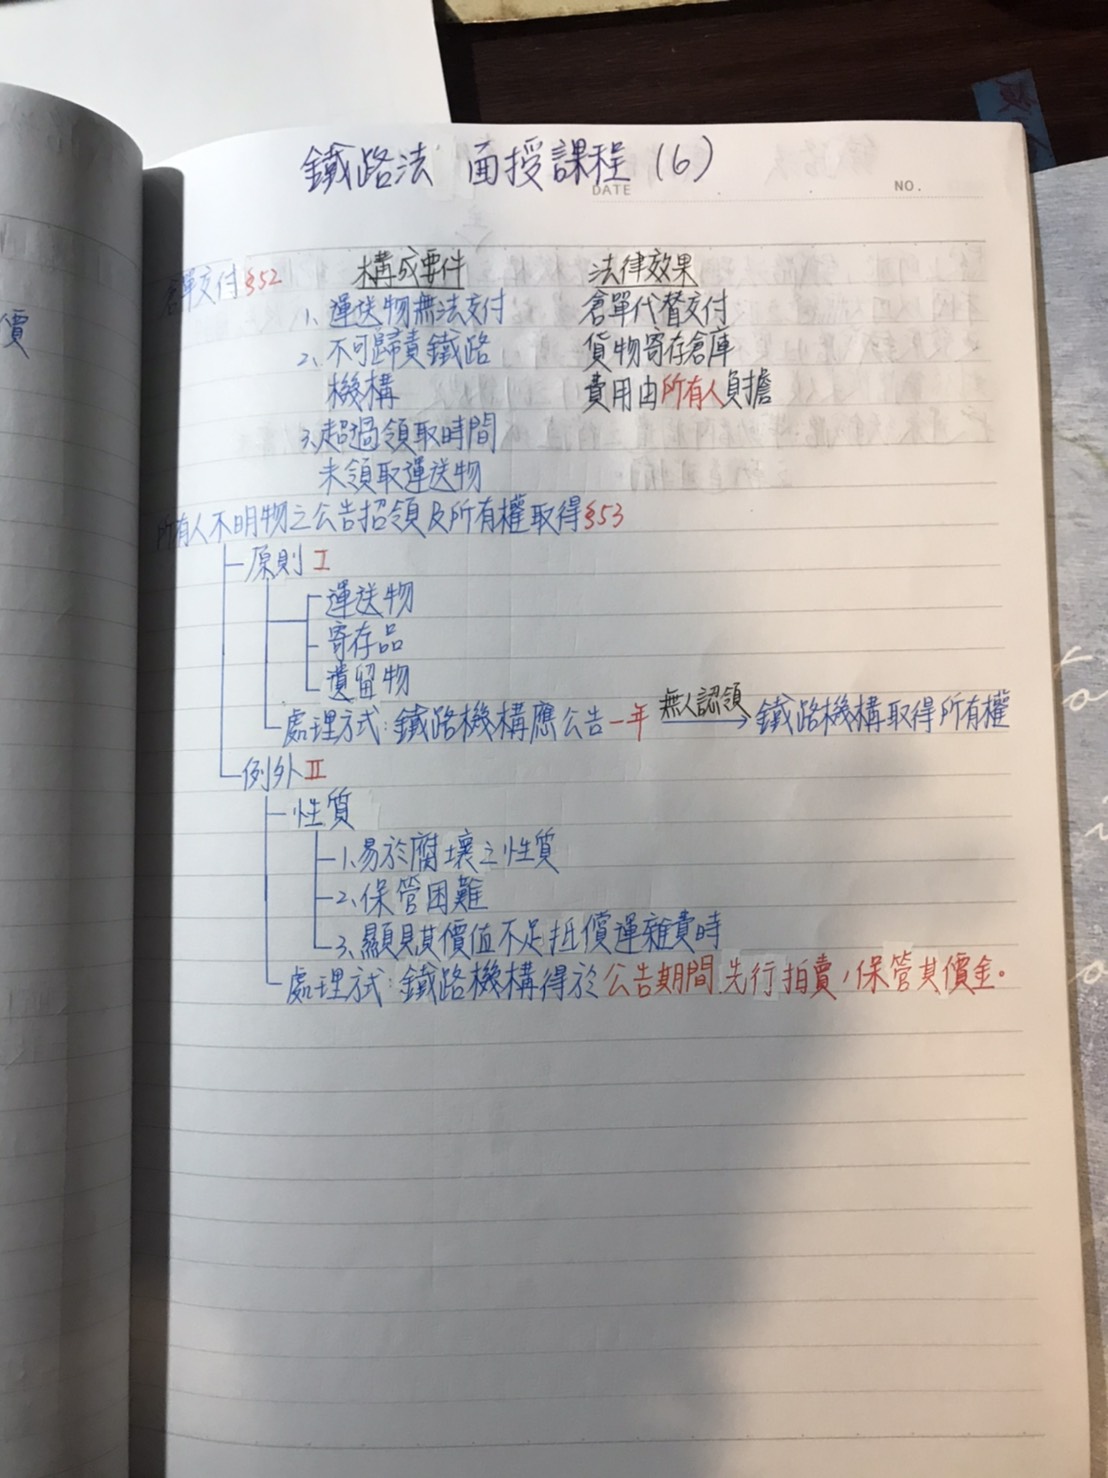 鐵路法 面授課程 (6)
DATE
NO.
價
倉單交付§52 構成要件 法律效果
1、運送物無法交付 倉單代替交付
2、不可歸責鐵路 貨物寄存倉庫
機構 費用由所有人負擔
3、超過領取時間
未領取運送物
所有人不明物之公告招領及所有權取得§53
原則 I
運送物
寄存品
遺留物
處理方式:鐵路機構應公告一年 無人認領 鐵路機構取得所有權
例外 II
性質
1、易於腐壞之性質
2、保管困難
3、顯見其價值不足抵償運雜費時
處理方式:鐵路機構得於公告期間先行拍賣,保管其價金。